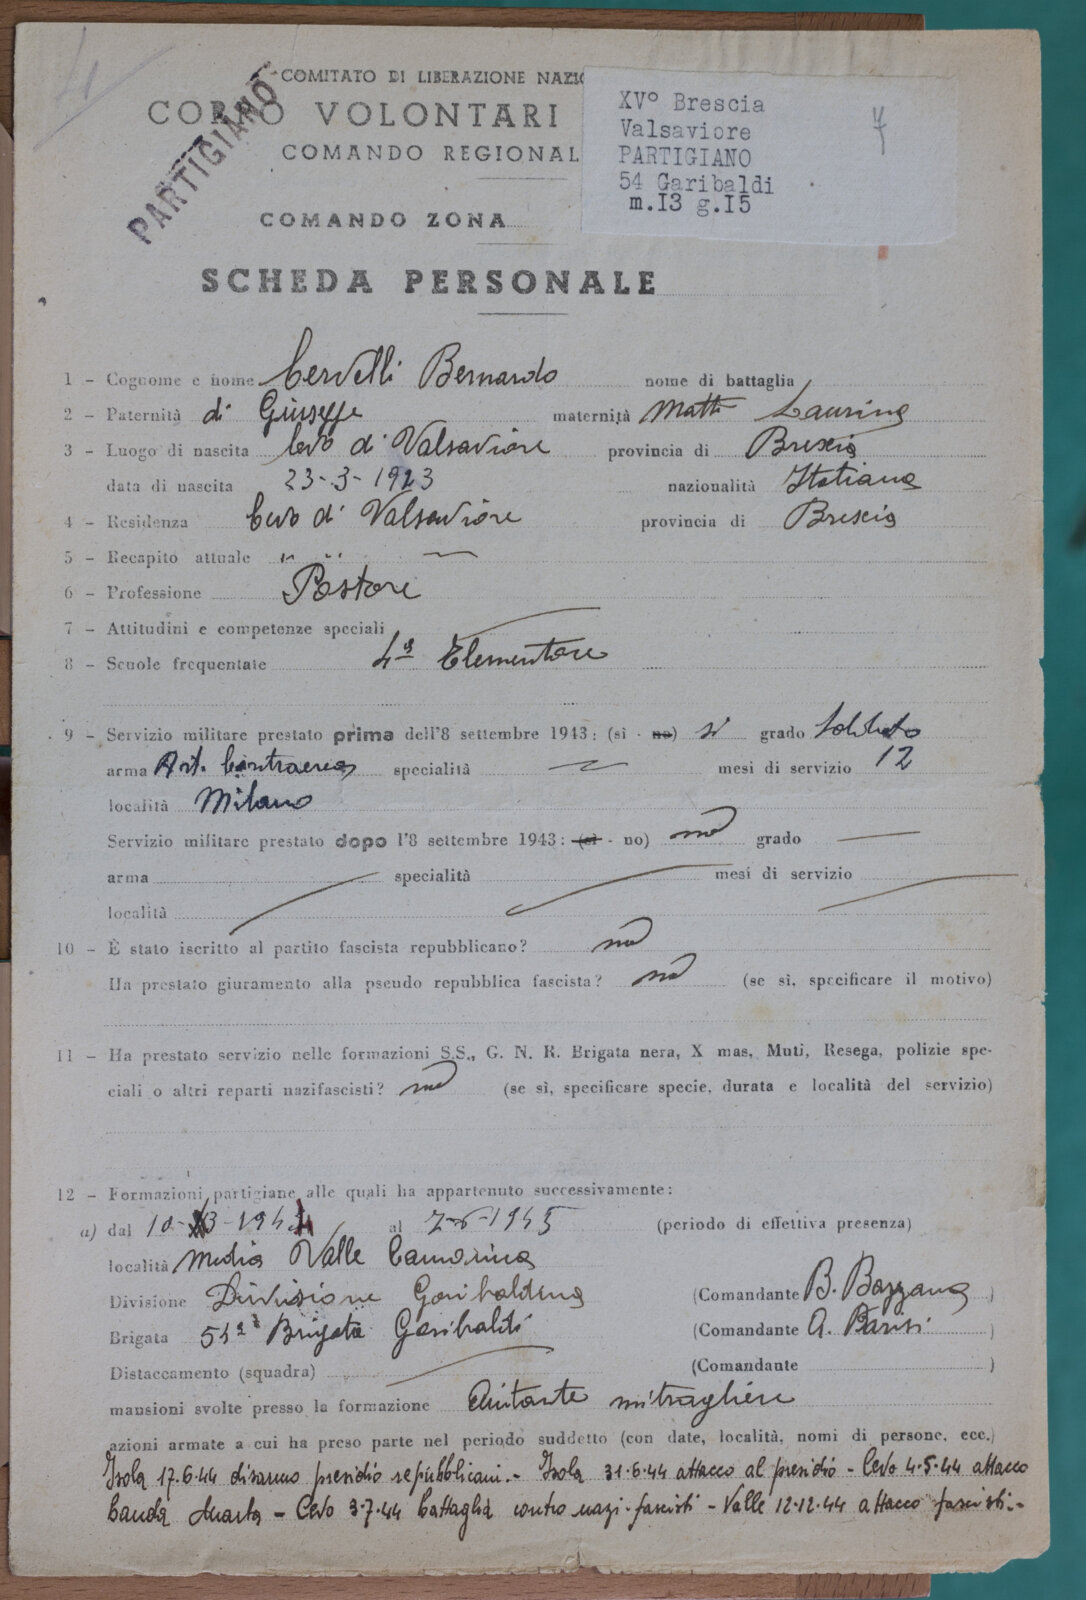 4
COMITATO DI LIBERAZIONE NAZIO
CORPO VOLONTARI
COMANDO REGIONAL
PARTIGIANO
XV° Brescia
Valsaviore
PARTIGIANO
54 Garibaldi
m.I3 g.I5
7
COMANDO ZONA
SCHEDA PERSONALE
1 - Cognome e nome Cervelli Bernardo nome di battaglia /
2 - Paternità di Giuseppe maternità Matti Laurina
3 - Luogo di nascita Cevo di Valsaviore provincia di Brescia
data di nascita 23-3-1923 nazionalità Italiana
4 - Residenza Cevo di Valsaviore provincia di Brescia
5 - Recapito attuale " " —
6 - Professione Pastore
7 - Attitudini e competenze speciali —
8 - Scuole frequentate 4ª Elementare
9 - Servizio militare prestato prima dell'8 settembre 1943: (sì - no) sì grado Soldato
arma Art. Contraerea specialità — mesi di servizio 12
località Milano
Servizio militare prestato dopo l'8 settembre 1943: (sì - no) no grado —
arma specialità mesi di servizio
località
10 - È stato iscritto al partito fascista repubblicano? no
Ha prestato giuramento alla pseudo repubblica fascista? no (se sì, specificare il motivo)
11 - Ha prestato servizio nelle formazioni S.S., G. N. R. Brigata nera, X mas, Muti, Resega, polizie spe-
ciali o altri reparti nazifascisti? no (se sì, specificare specie, durata e località del servizio)
12 - Formazioni partigiane alle quali ha appartenuto successivamente:
a) dal 10-3-1944 al 7-6-1945 (periodo di effettiva presenza)
località Media Valle Camonica
Divisione Divisione Garibaldina (Comandante B. Bazzana )
Brigata 54ª Brigata Garibaldi (Comandante A. Parisi )
Distaccamento (squadra) — (Comandante )
mansioni svolte presso la formazione Aiutante mitragliere
azioni armate a cui ha preso parte nel periodo suddetto (con date, località, nomi di persone, ecc.)
Isola 17.6.44 disarmo presidio repubblicani.- Isola 31.6.44 attacco al presidio - Cevo 4.5.44 attacco
banda Marta - Cevo 3.7.44 battaglia contro nazi-fascisti - Valle 12.12.44 attacco fascisti.-